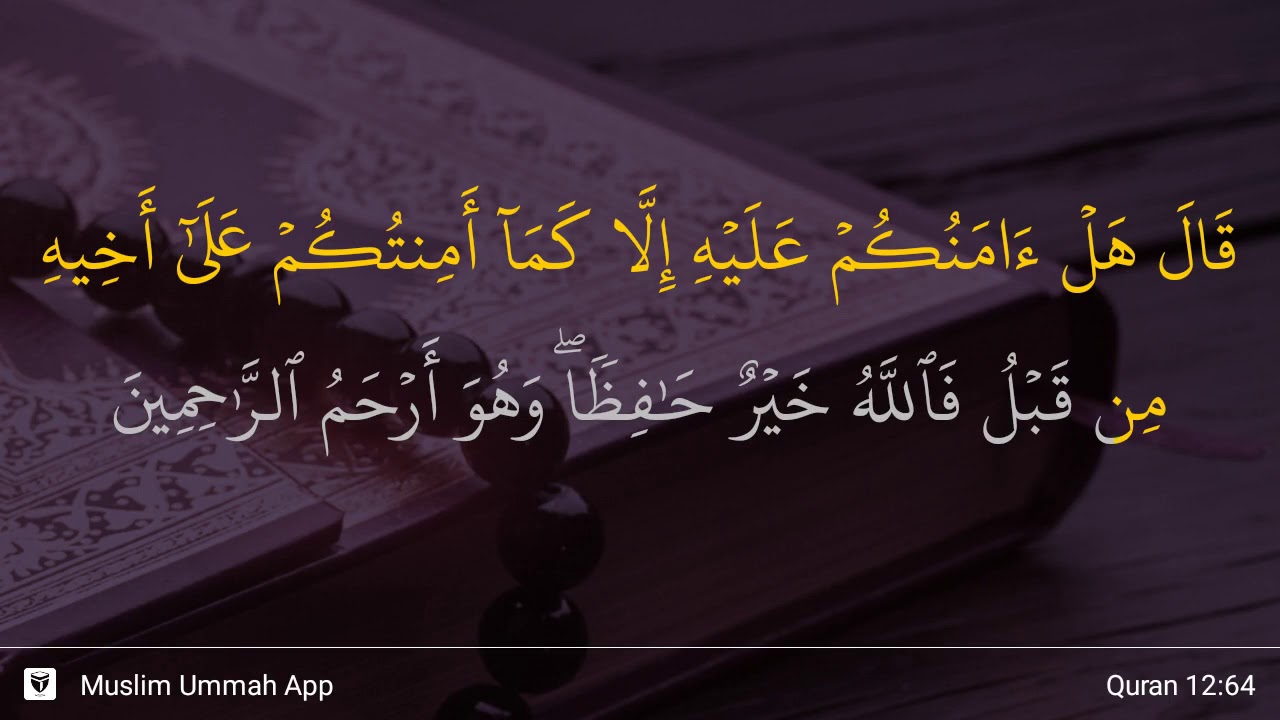 قَالَ هَلْ ءَامَنُكُمْ عَلَيْهِ إِلَّا كَمَآ أَمِنتُكُمْ عَلَىٰٓ أَخِيهِ
مِن قَبْلُ فَٱللَّهُ خَيْرٌ حَـٰفِظًۭا ۖ وَهُوَ أَرْحَمُ ٱلرَّٰحِمِينَ
Muslim Ummah App
Quran 12:64